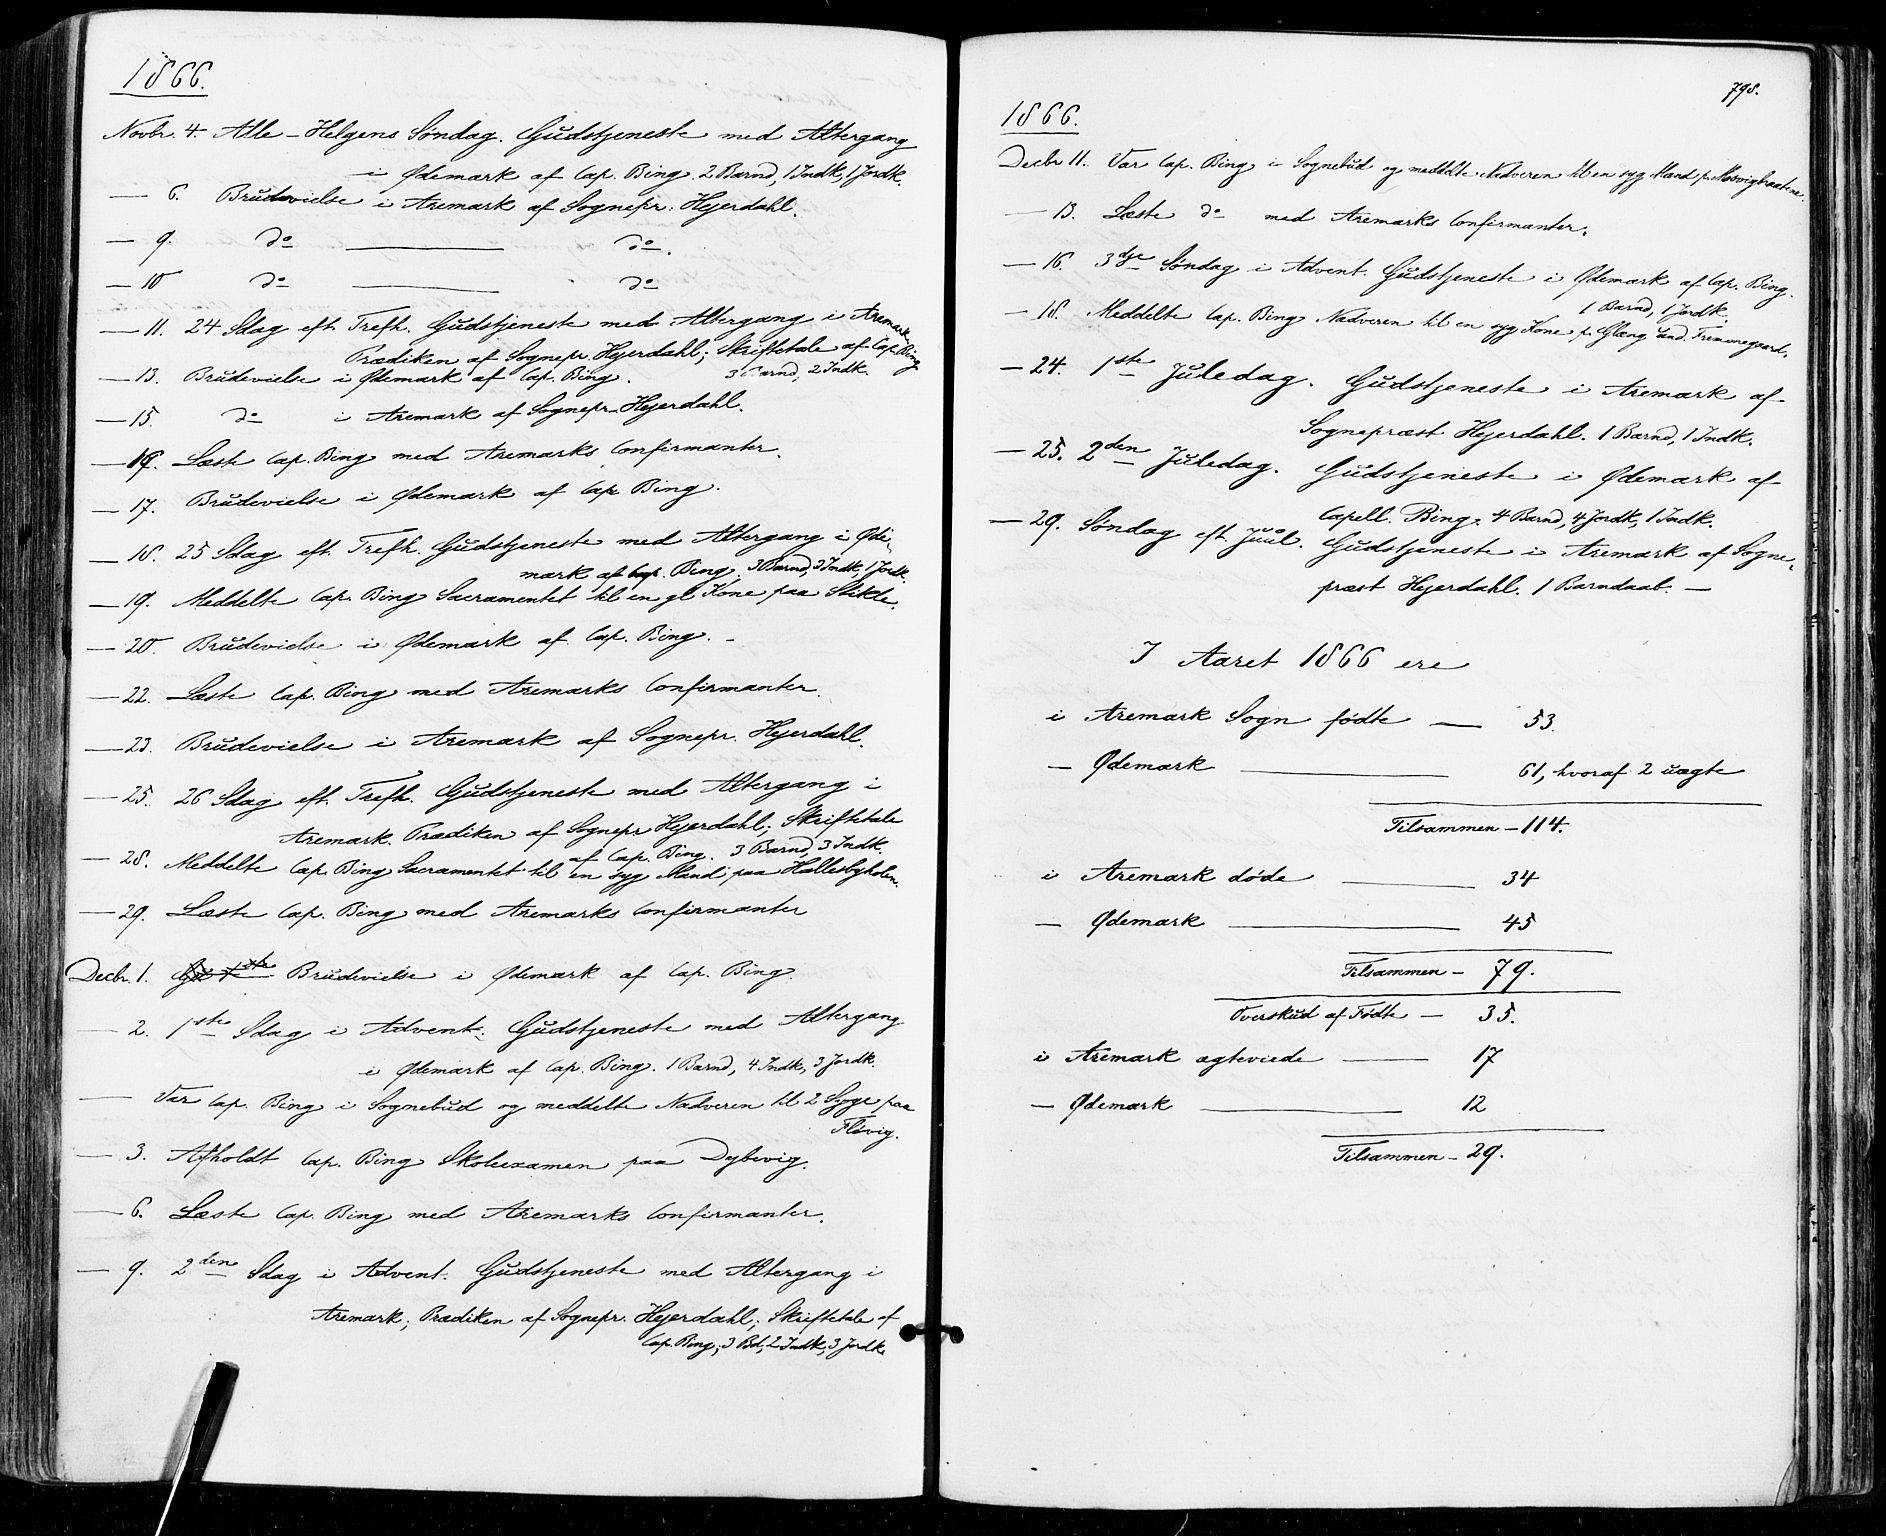 1866.
Novbr. 4. Alle-Helgens Søndag. Gudstjeneste med Altergang
i Ødemark af Cap. Bing. 2 Barnd, 1 Indk, 1 Jordk.
— 6. Brudevielse i Aremark af Sognepr. Hjerdahl.
— 9. do — do.
— 10 do — do
— 11. 24 Sdag eft. Trefh. Gudstjeneste med Altergang i Aremark,
Prædiken af Sognepr. Hjerdahl; Skriftetale af Cap. Bing
3 Barnd, 2 Indk.
— 13. Brudevielse i Ødemark af Cap. Bing.
— 15. do i Aremark af Sognepr. Hjerdahl.
— Læste Cap. Bing med Aremarks Confirmanter.
— 17. Brudevielse i Ødemark af Cap Bing.
— 18. 25 Sdag eft. Trefh. Gudstjeneste med Altergang i Øde-
mark af Cap. Bing, 3 Barnd, 3 Indk, 1 Jordk.
— 19. Meddelte Cap. Bing Sacramentet til en gl Kone paa Stikle.
— 20. Brudevielse i Ødemark af Cap. Bing. –
— 22. Læste Cap. Bing med Aremarks Confirmanter.
— 23. Brudevielse i Aremark af Sognepr. Hjerdahl.
— 25. 26 Sdag eft. Trefh. Gudstjeneste med Altergang i
Aremark. Prædiken af Sognepr Hjerdahl; Skriftetale
af Cap. Bing. 3 Barnd, 3 Indk.
— 28. Meddelte Cap. Bing Sacramentet til en syg Mand paa Hallesbyholm.
— 29. Læste Cap. Bing med Aremarks Confirmanter
Decbr. 1. Brudevielse i Ødemark af Cap. Bing.
— 2. 1ste Sdag i Advent. Gudstjeneste med Altergang
i Ødemark af Cap. Bing. 1 Barnd, 4 Indk, 3 Jordk.
— Var Cap. Bing i Sognebud og meddelte Nadveren til 2 Syge paa
Flövig.
— 3. Afholdt Cap. Bing Skoleexamen paa Dybevig.
— 6. Læste Cap. Bing med Aremarks Confirmanter.
— 9. 2den Sdag i Advent. Gudstjeneste med Altergang i
Aremark; Prædiken af Sognepr. Hjerdahl; Skriftetale af
Cap. Bing; 3 Bd, 2 Indk, 3 Jordk.
798.
1866.
Decbr 11. Var Cap. Bing i Sognebud og meddelte Nadveren til en syg Mand p.
— 13. Læste do med Aremarks Confirmanter.
— 16. 3dje Søndag i Advent. Gudstjeneste i Ødemark af Cap. Bing.
1 Barnd, 1 Jordk.
— 18. Meddelte Cap. Bing Nadveren til en syg Kone p.
— 24. 1ste Juledag. Gudstjeneste i Aremark af
Sognepræst Hjerdahl. 1 Barnd, 1 Indk.
— 25. 2den Juledag. Gudstjeneste i Ødemark af
Capell. Bing. 4 Barnd, 4 Jordk, 1 Indk.
— 29. Søndag eft. Juul. Gudstjeneste i Aremark af Sogne-
præst Hjerdahl. 1 Barndaab. —
I Aaret 1866 ere
i Aremark Sogn fødte — 53.
— Ødemark — 61, hvoraf 2 uægte
Tilsammen – 114.
i Aremark døde — 34
— Ødemark — 45
Tilsammen – 79.
Overskud af Fødte – 35.
i Aremark ægteviede — 17
— Ødemark — 12
Tilsammen – 29.